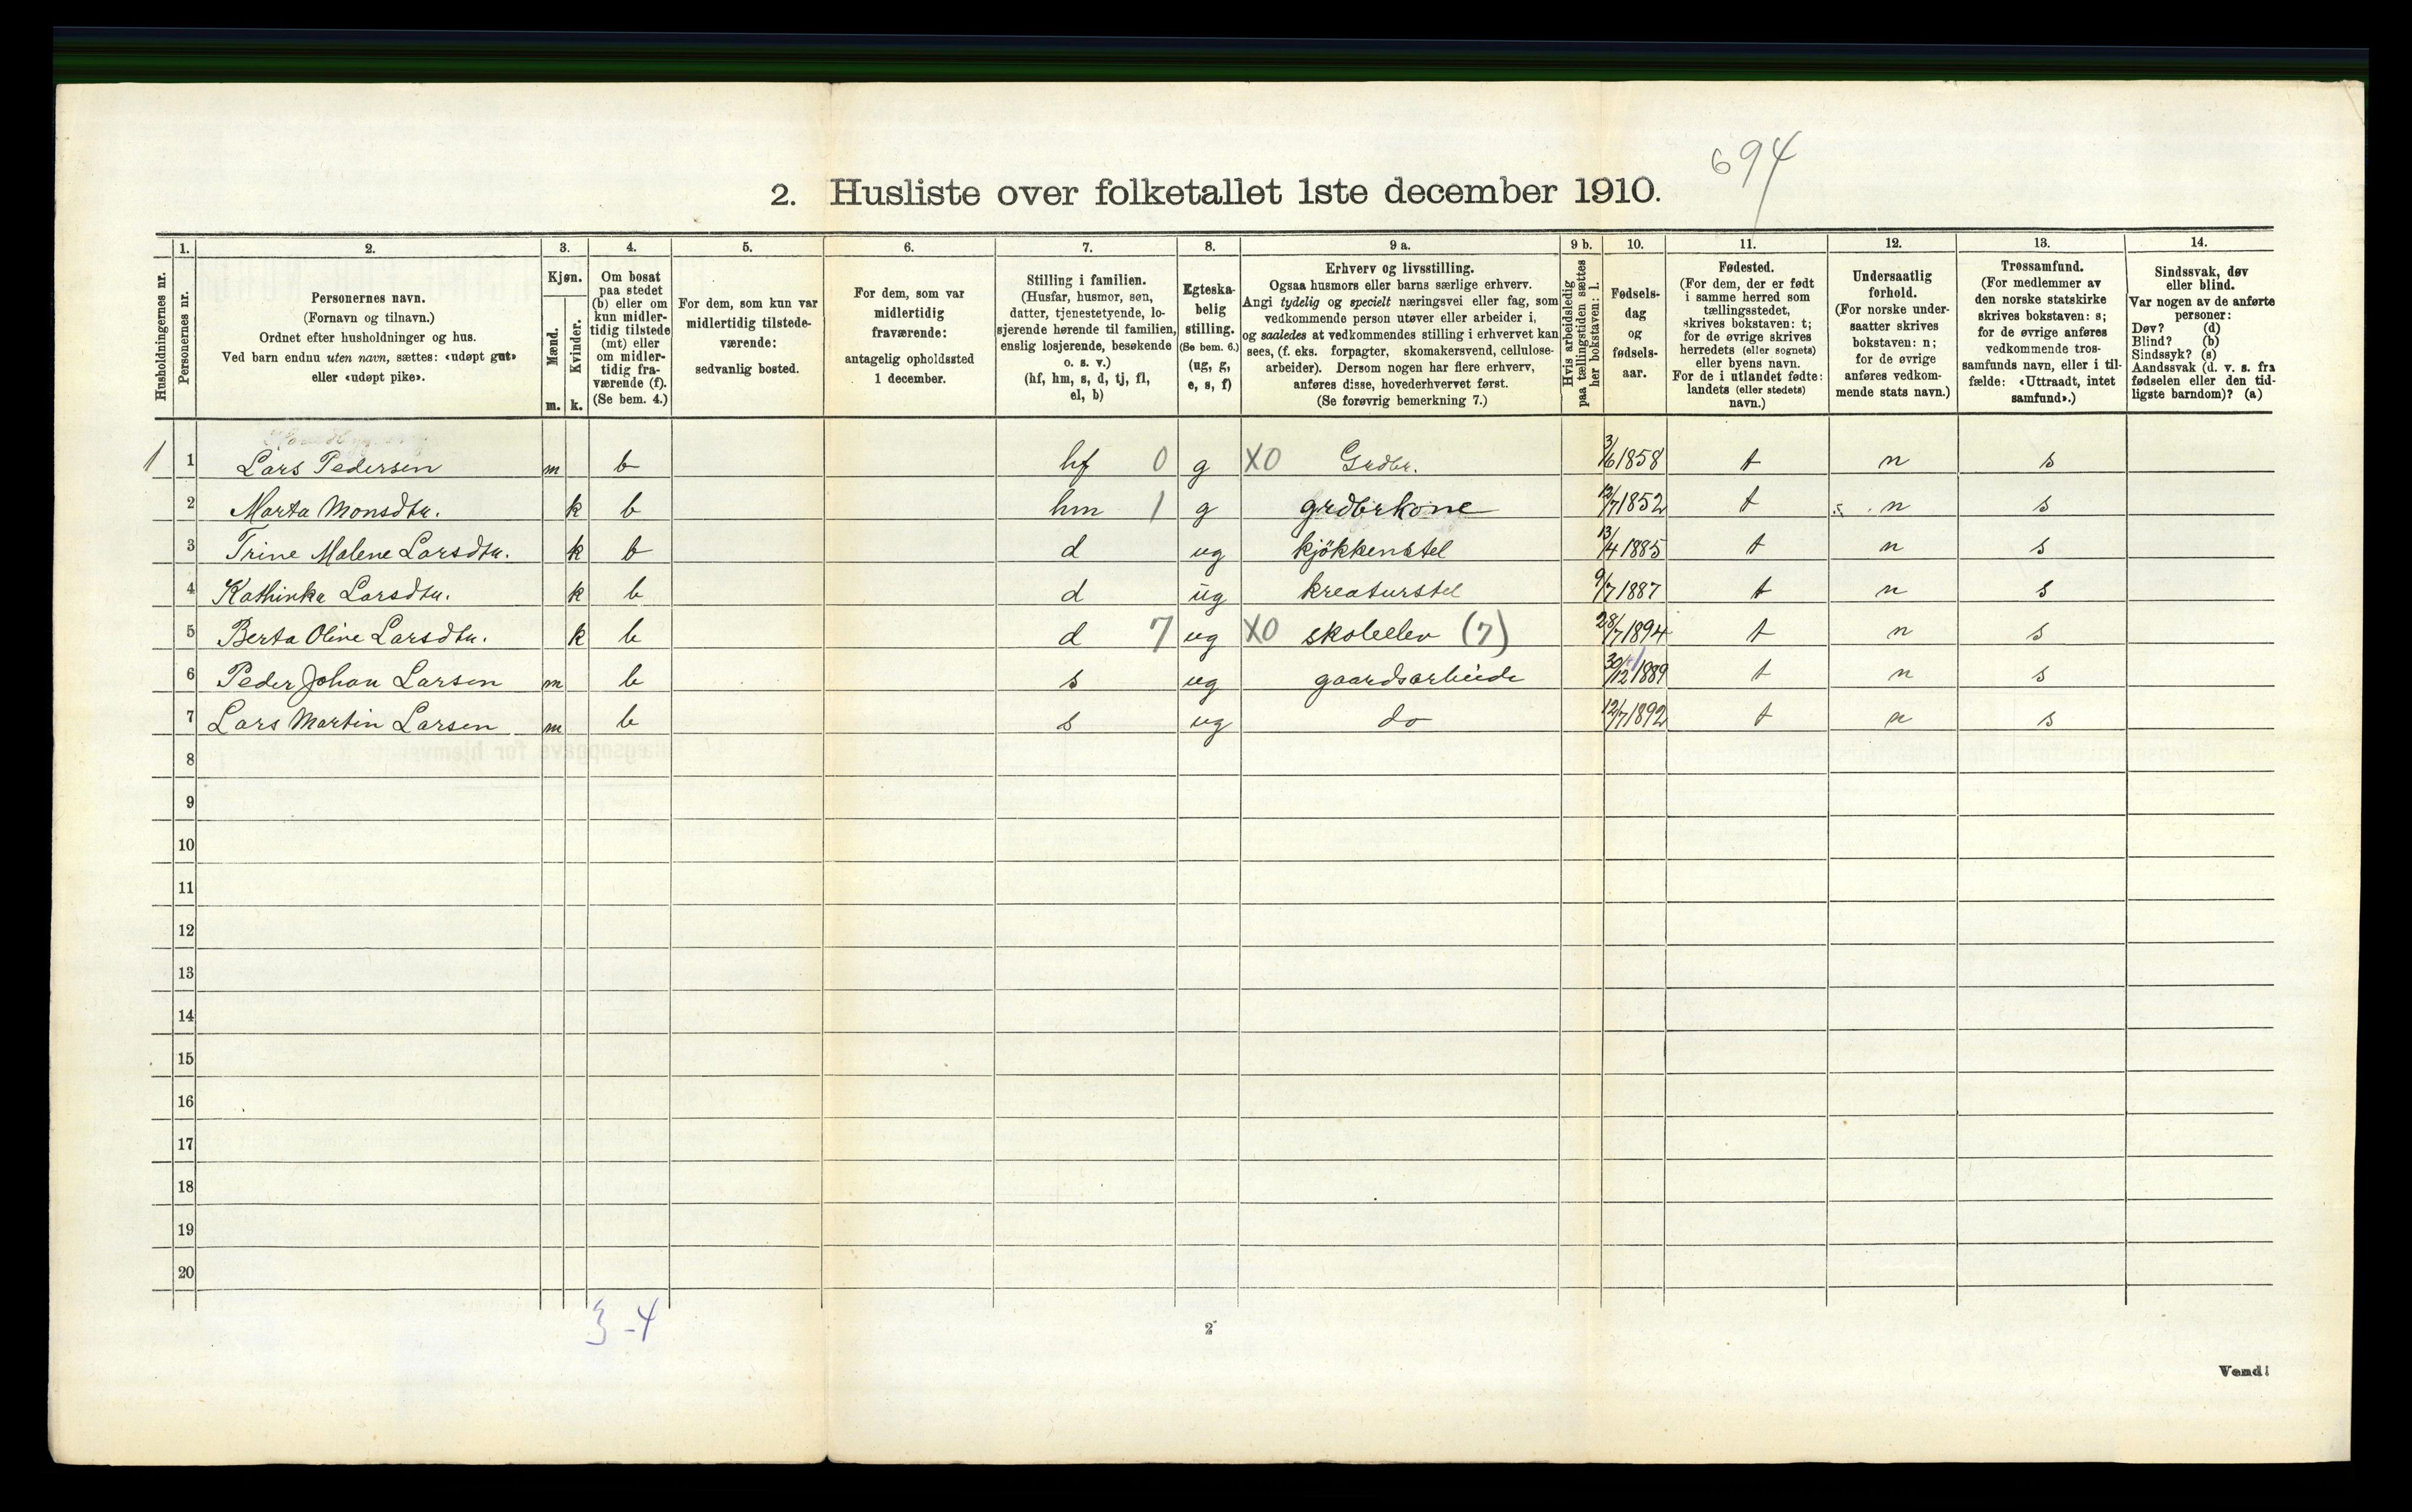 694
2. Husliste over folketallet 1ste december 1910.
Husholdningernes nr.
1.
Personernes nr.
2.
Personernes navn.
(Fornavn og tilnavn.)
Ordnet efter husholdninger og hus.
Ved barn endnu uten navn, sættes: «udøpt gut»
eller «udøpt pike».
3.
Kjøn.
Mænd.
Kvinder.
m. k.
4.
Om bosat
paa stedet
(b) eller om
kun midler-
tidig tilstede
(mt) eller
om midler-
tidig fra-
værende (f).
(Se bem. 4.)
5.
For dem, som kun var
midlertidig tilstede-
værende:
sedvanlig bosted.
6.
For dem, som var
midlertidig
fraværende:
antagelig opholdssted
1 december.
7.
Stilling i familien.
(Husfar, husmor, søn,
datter, tjenestetyende, lo-
sjerende hørende til familien,
enslig losjerende, besøkende
o. s. v.)
(hf, hm, s, d, tj, fl,
el, b)
8.
Egteska-
belig
stilling.
(Se bem. 6.)
(ug, g,
e, s, f)
9 a.
Erhverv og livsstilling.
Ogsaa husmors eller barns særlige erhverv.
Angi tydelig og specielt næringsvei eller fag, som
vedkommende person utøver eller arbeider i,
og saaledes at vedkommendes stilling i erhvervet kan
sees, (f. eks. forpagter, skomakersvend, cellulose-
arbeider). Dersom nogen har flere erhverv,
anføres disse, hovederhvervet først.
(Se forøvrig bemerkning 7.)
9 b.
Hvis arbeidsledig
paa tællingstiden sættes
her bokstaven: l.
10.
Fødsels-
dag
og
fødsels-
aar.
11.
Fødested.
(For dem, der er født
i samme herred som
tællingsstedet,
skrives bokstaven: t;
for de øvrige skrives
herredets (eller sognets)
eller byens navn.
For de i utlandet fødte:
landets (eller stedets)
navn.)
12.
Undersaatlig
forhold.
(For norske under-
saatter skrives
bokstaven: n;
for de øvrige
anføres vedkom-
mende stats navn.)
13.
Trossamfund.
(For medlemmer av
den norske statskirke
skrives bokstaven: s;
for de øvrige anføres
vedkommende tros-
samfunds navn, eller i til-
fælde: «Uttraadt, intet
samfund».)
14.
Sindssvak, døv
eller blind.
Var nogen av de anførte
personer:
Døv? (d)
Blind? (b)
Sindssyk? (s)
Aandssvak (d. v. s. fra
fødselen eller den tid-
ligste barndom)? (a)
1 1 Lars Pedersen m b hf 0 g X0 Grdbr. 3/6 1858 t n s
2 Marta Monsdtr. k b hm 1 g grdbrkone 12/7 1852 t n s
3 Trine Malene Larsdtr. k b d ug kjökkenstel 13/4 1885 t n s
4 Kathinka Larsdtr. k b d ug kreaturstel 9/7 1887 t n s
5 Berta Oline Larsdtr. k b d 7 ug X0 skoleelev (7) 28/7 1894 t n s
6 Peder Johan Larsen m b s ug gaardsarbeide 30/12 1889 t n s
7 Lars Martin Larsen m b s ug do 12/7 1892 t n s
8
9
10
11
12
13
14
15
16
17
18
19
20
3-4
2
Vend!